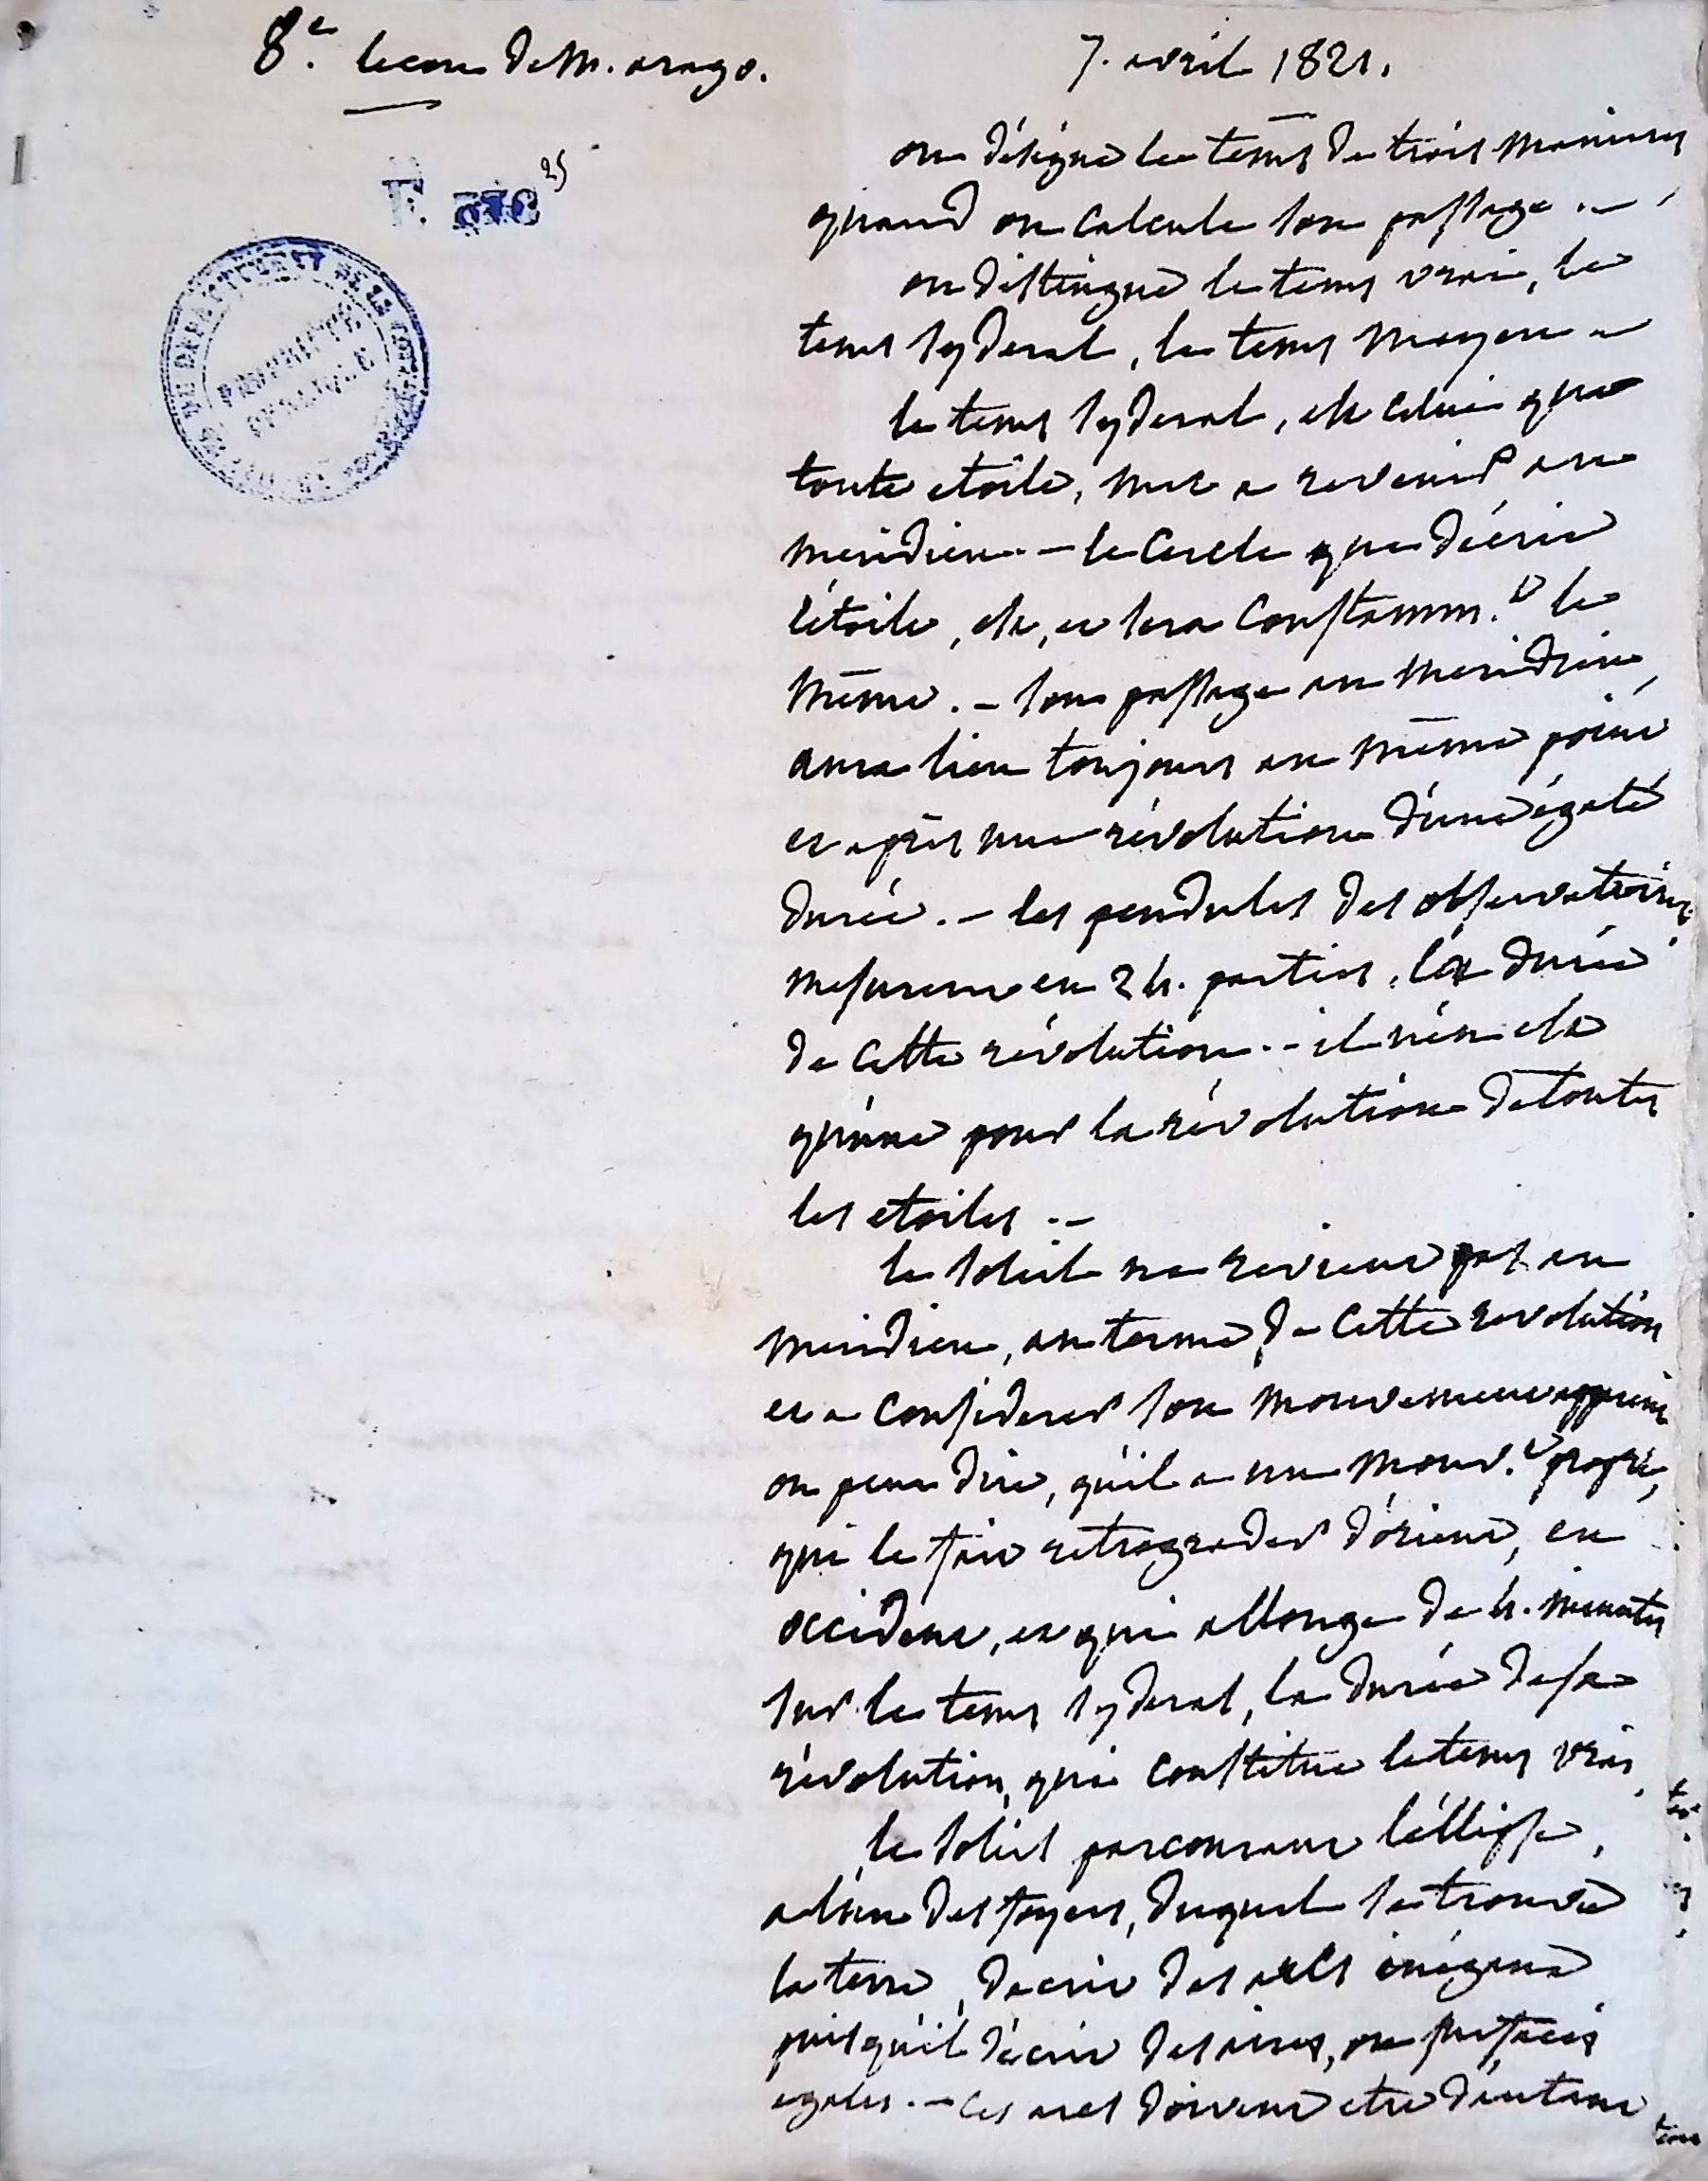 8e. lecon de M. arago.
7. avril 1821.
F. 376 25
PROPRIÉTÉ PUBLIQUE
on désigne le tems de trois manieres
quand on calcule son passage .—
on distingue le tems vrai, le
tems syderal, le tems moyen —
le tems syderal, est celui que
toute etoile, met a revenir au
meridien. — le cercle que décrit
l'étoile, est, et sera constamm.t le
même. — son passage au meridien,
aura lieu toujours au même point
et après une révolution d'une égale
durée. — les pendules des observatoires
mesurent en 24. parties, la durée
de cette révolution. — il n'en est
qu'une pour la révolution de toutes
les etoiles .—
le soleil ne revient pas au
meridien, au terme de cette revolution
et a considerer son mouvement apparent
on peut dire, qu'il a un mouv.t propre,
qui le fait retrograder d'orient, en
occident, et qui allonge de 4. minutes
sur le tems syderal, la durée de sa
révolution, qui constitue le tems vrai,
le soleil parcourant l'éllipse,
a l'un des foyers, duquel se trouve
la terre, decrit des arcs inégaux
puisqu'il décrit des aires, ou surfaces
egales. — ces arcs doivent etre d'autant